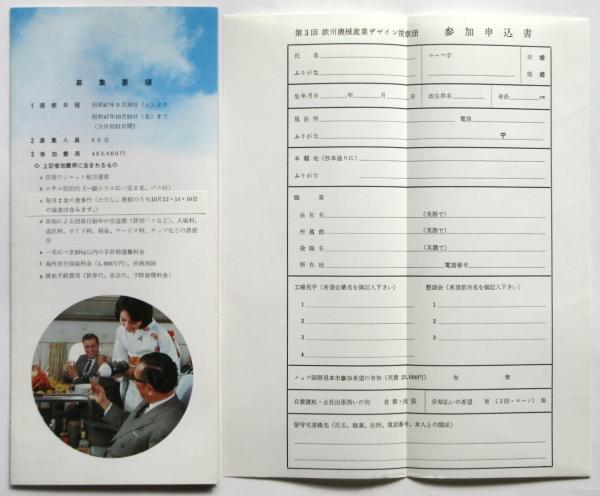 募集要領
1 視察日程 昭和47年9月30日（土）より
昭和47年10月20日（金）まで
（全日程21日間）
2 募集人員 60名
3 参加費用 463,000円
◇ 上記参加費用に含まれるもの
a 往復のジェット航空運賃
b ホテル宿泊代（一級ホテルに一室2名、バス付）
c 毎日2食の食事代（ただし、旅程のうち10月13・14・16日
の昼食は含みます。）
d 旅程による団体行動中の交通費（貸切バスなど）、入場料、
通訳料、ガイド料、税金、サービス料、チップなどの諸費
用
e 一名につき20kg以内の手荷物運搬料金
f 海外旅行保険料金（1,000万円）、疾病保険
g 渡航手続費用（旅券代、査証代、予防接種料金）
第3回 欧州機械産業デザイン視察団 参加申込書
氏名 ローマ字 未婚
ふりがな 既婚
生年月日 年 月 日 出生県名 身長 cm
現住所 電話
ふりがな 〒
本籍地（抄本通りに）
ふりがな
職業
会社名 （英語で）
所属部 （英語で）
役職名 （英語で）
所在地 電話番号
工場見学（希望企業名を御記入下さい） 懇談会（希望都市名を御記入下さい）
1 1
2 2
3 3
4
国際見本市参加希望の有無（実費 25,000円） 有 無
自費渡航・会社出張扱いの別 自費・出張 分割払いの希望 有（3回・ローン） 無
留守宅連絡先（氏名、職業、住所、電話番号、本人との関係）